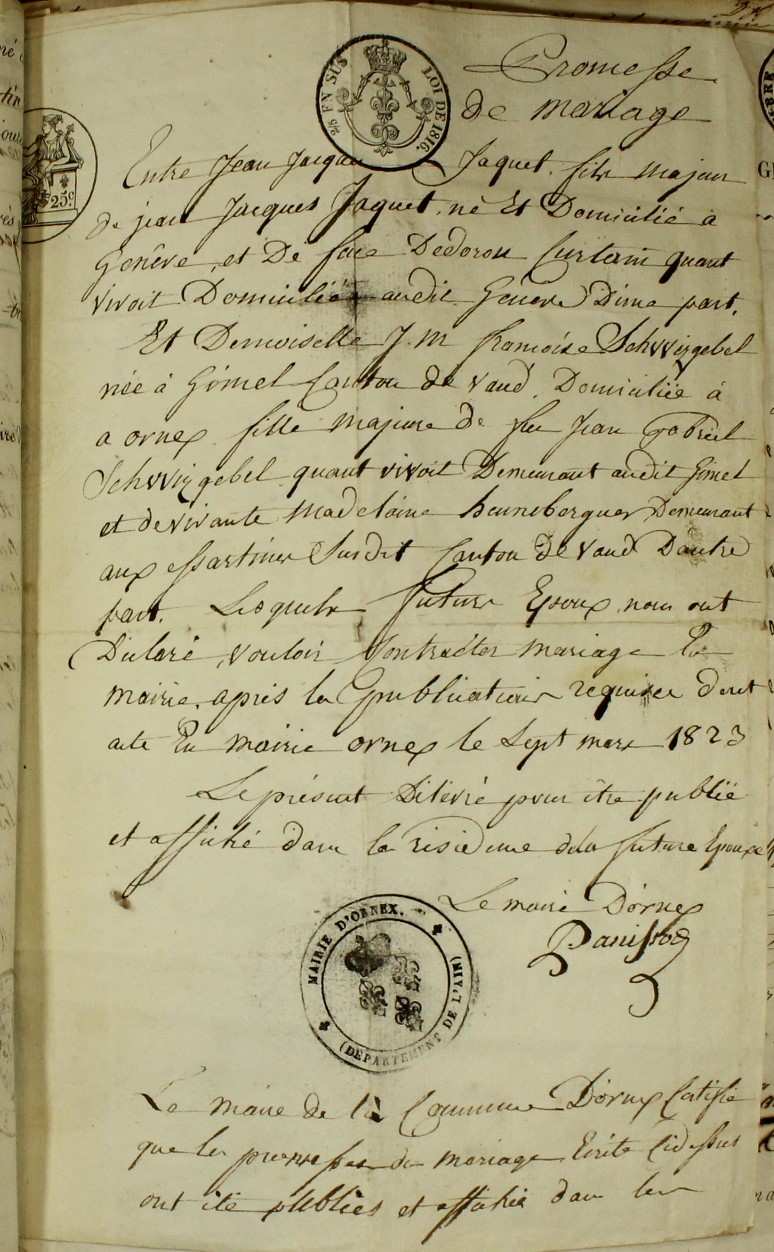 Promesse
de mariage
EN SUS
LOI DE 1816.
25c
Entre Jean Jacques Jaquet, fils majeur
de jean Jacques Jaquet, né Et Domicilié à
Genêve, et De feue Curtain quant
vivoit Domiciliée audit Genève Dune part.
Et Demoiselle J. M francoise Schwizgebel
née à Gimel Canton de vaud, Domiciliée à
a ornex fille majeure de feu Jean Gabriel
Schwizgebel quant vivoit Demeurant audit Gimel
et de vivante Madelaine henneberguer Demeurant
aux Essertines Susdit Canton De vaud Dautre
part. Lesquels futurs Epoux nous ont
Déclaré, vouloir Contracter mariage En
mairie, après les publications requises dont
acte En mairie ornex le Sept mars 1823
Le présent Délivré pour être publié
et affiché dans la résidence de la future Epouse
Le maire D'ornex
Panissod
MAIRIE D'ORNEX.
(DEPARTEMENT DE L'AIN)
Le maire de la Commune D'ornex Certifie
que les promesses de mariage Ecrite Cidessus
ont été publiées et affichée dans les